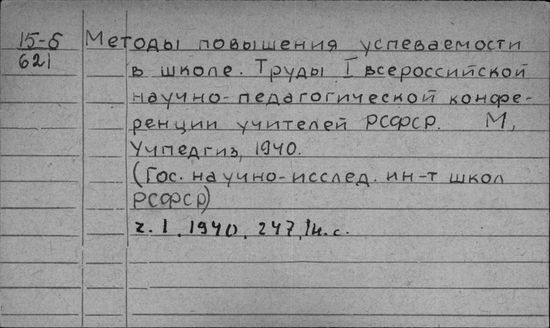 15-5 Методы повышения успеваемости
621 в школе. Труды I всероссийской
научно-педагогической конфе-
ренции учителей РСФСР. М,
Учпедгиз, 1940.
(Гос. научно-исслед. ин-т школ
РСФСР)
ч. I, 1940, 247, 1н. с.